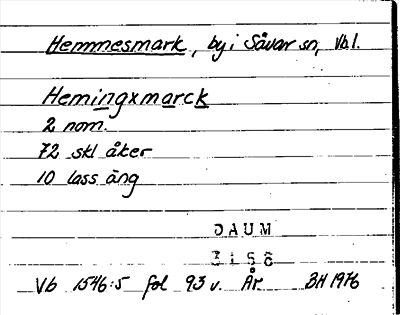 Hemmesmark, by i Sävar sn, Vbl.
Hemingxmarck
2 nom.
72 skl åker
10 lass äng
DAUM
3156
Vb 1546:5 fol 93 v. År BH 1976